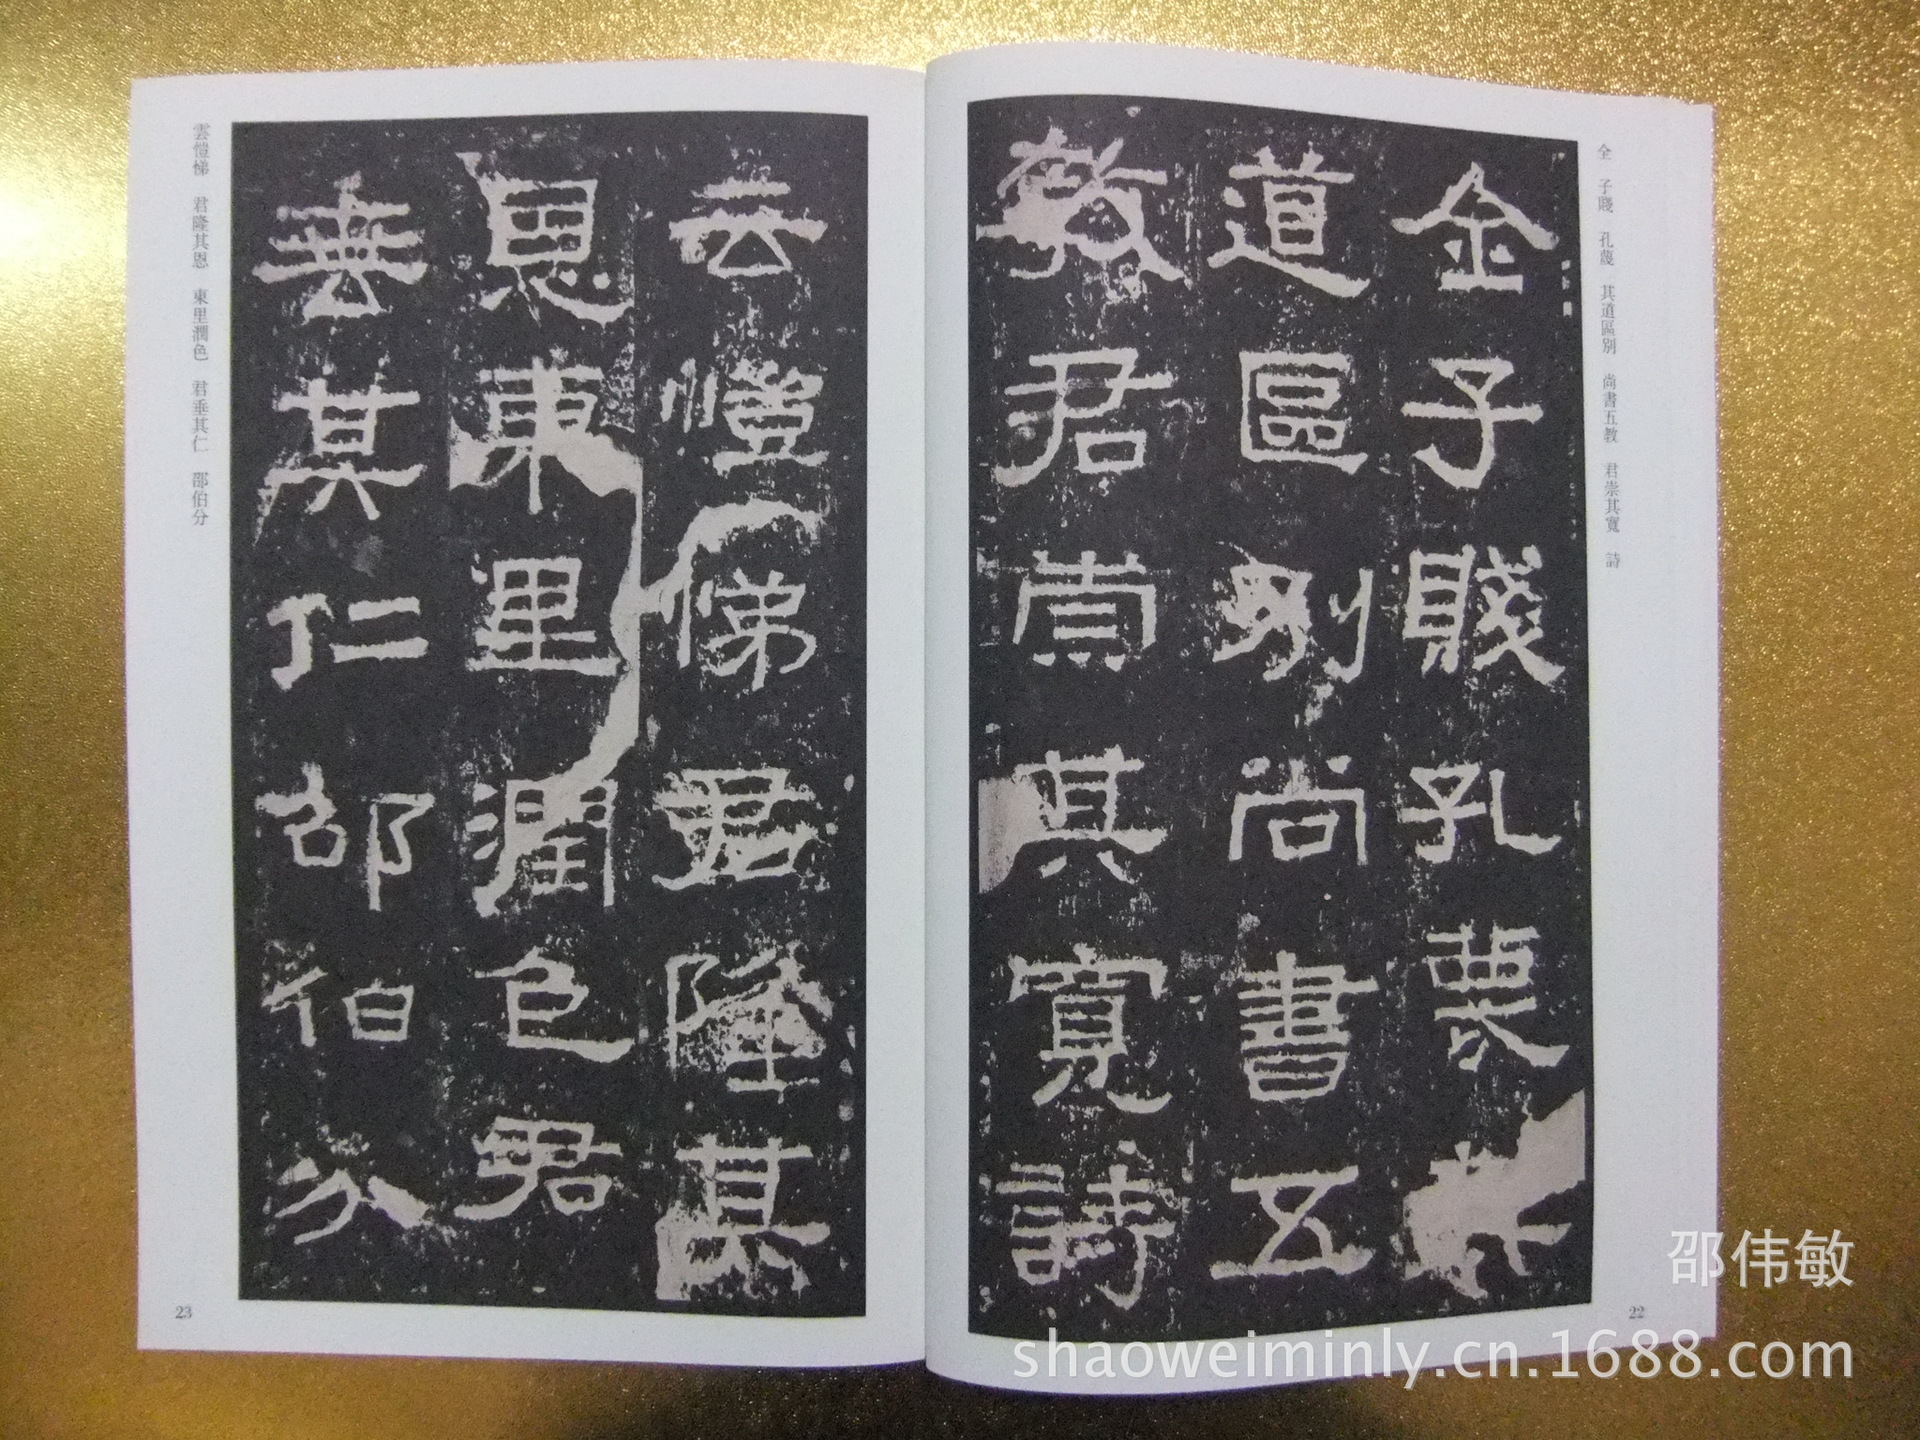 全 子賤 孔蔑 其道區別 尚書五教 君崇其寬 詩
金子賤孔蔑其
道區別尚書五
教君崇其寬詩
22
云愷悌君隆其
恩東里潤色君
垂其仁邵伯分
雲愷悌 君隆其恩 東里潤色 君垂其仁 邵伯分
23
邵伟敏
shaoweiminly.cn.1688.com